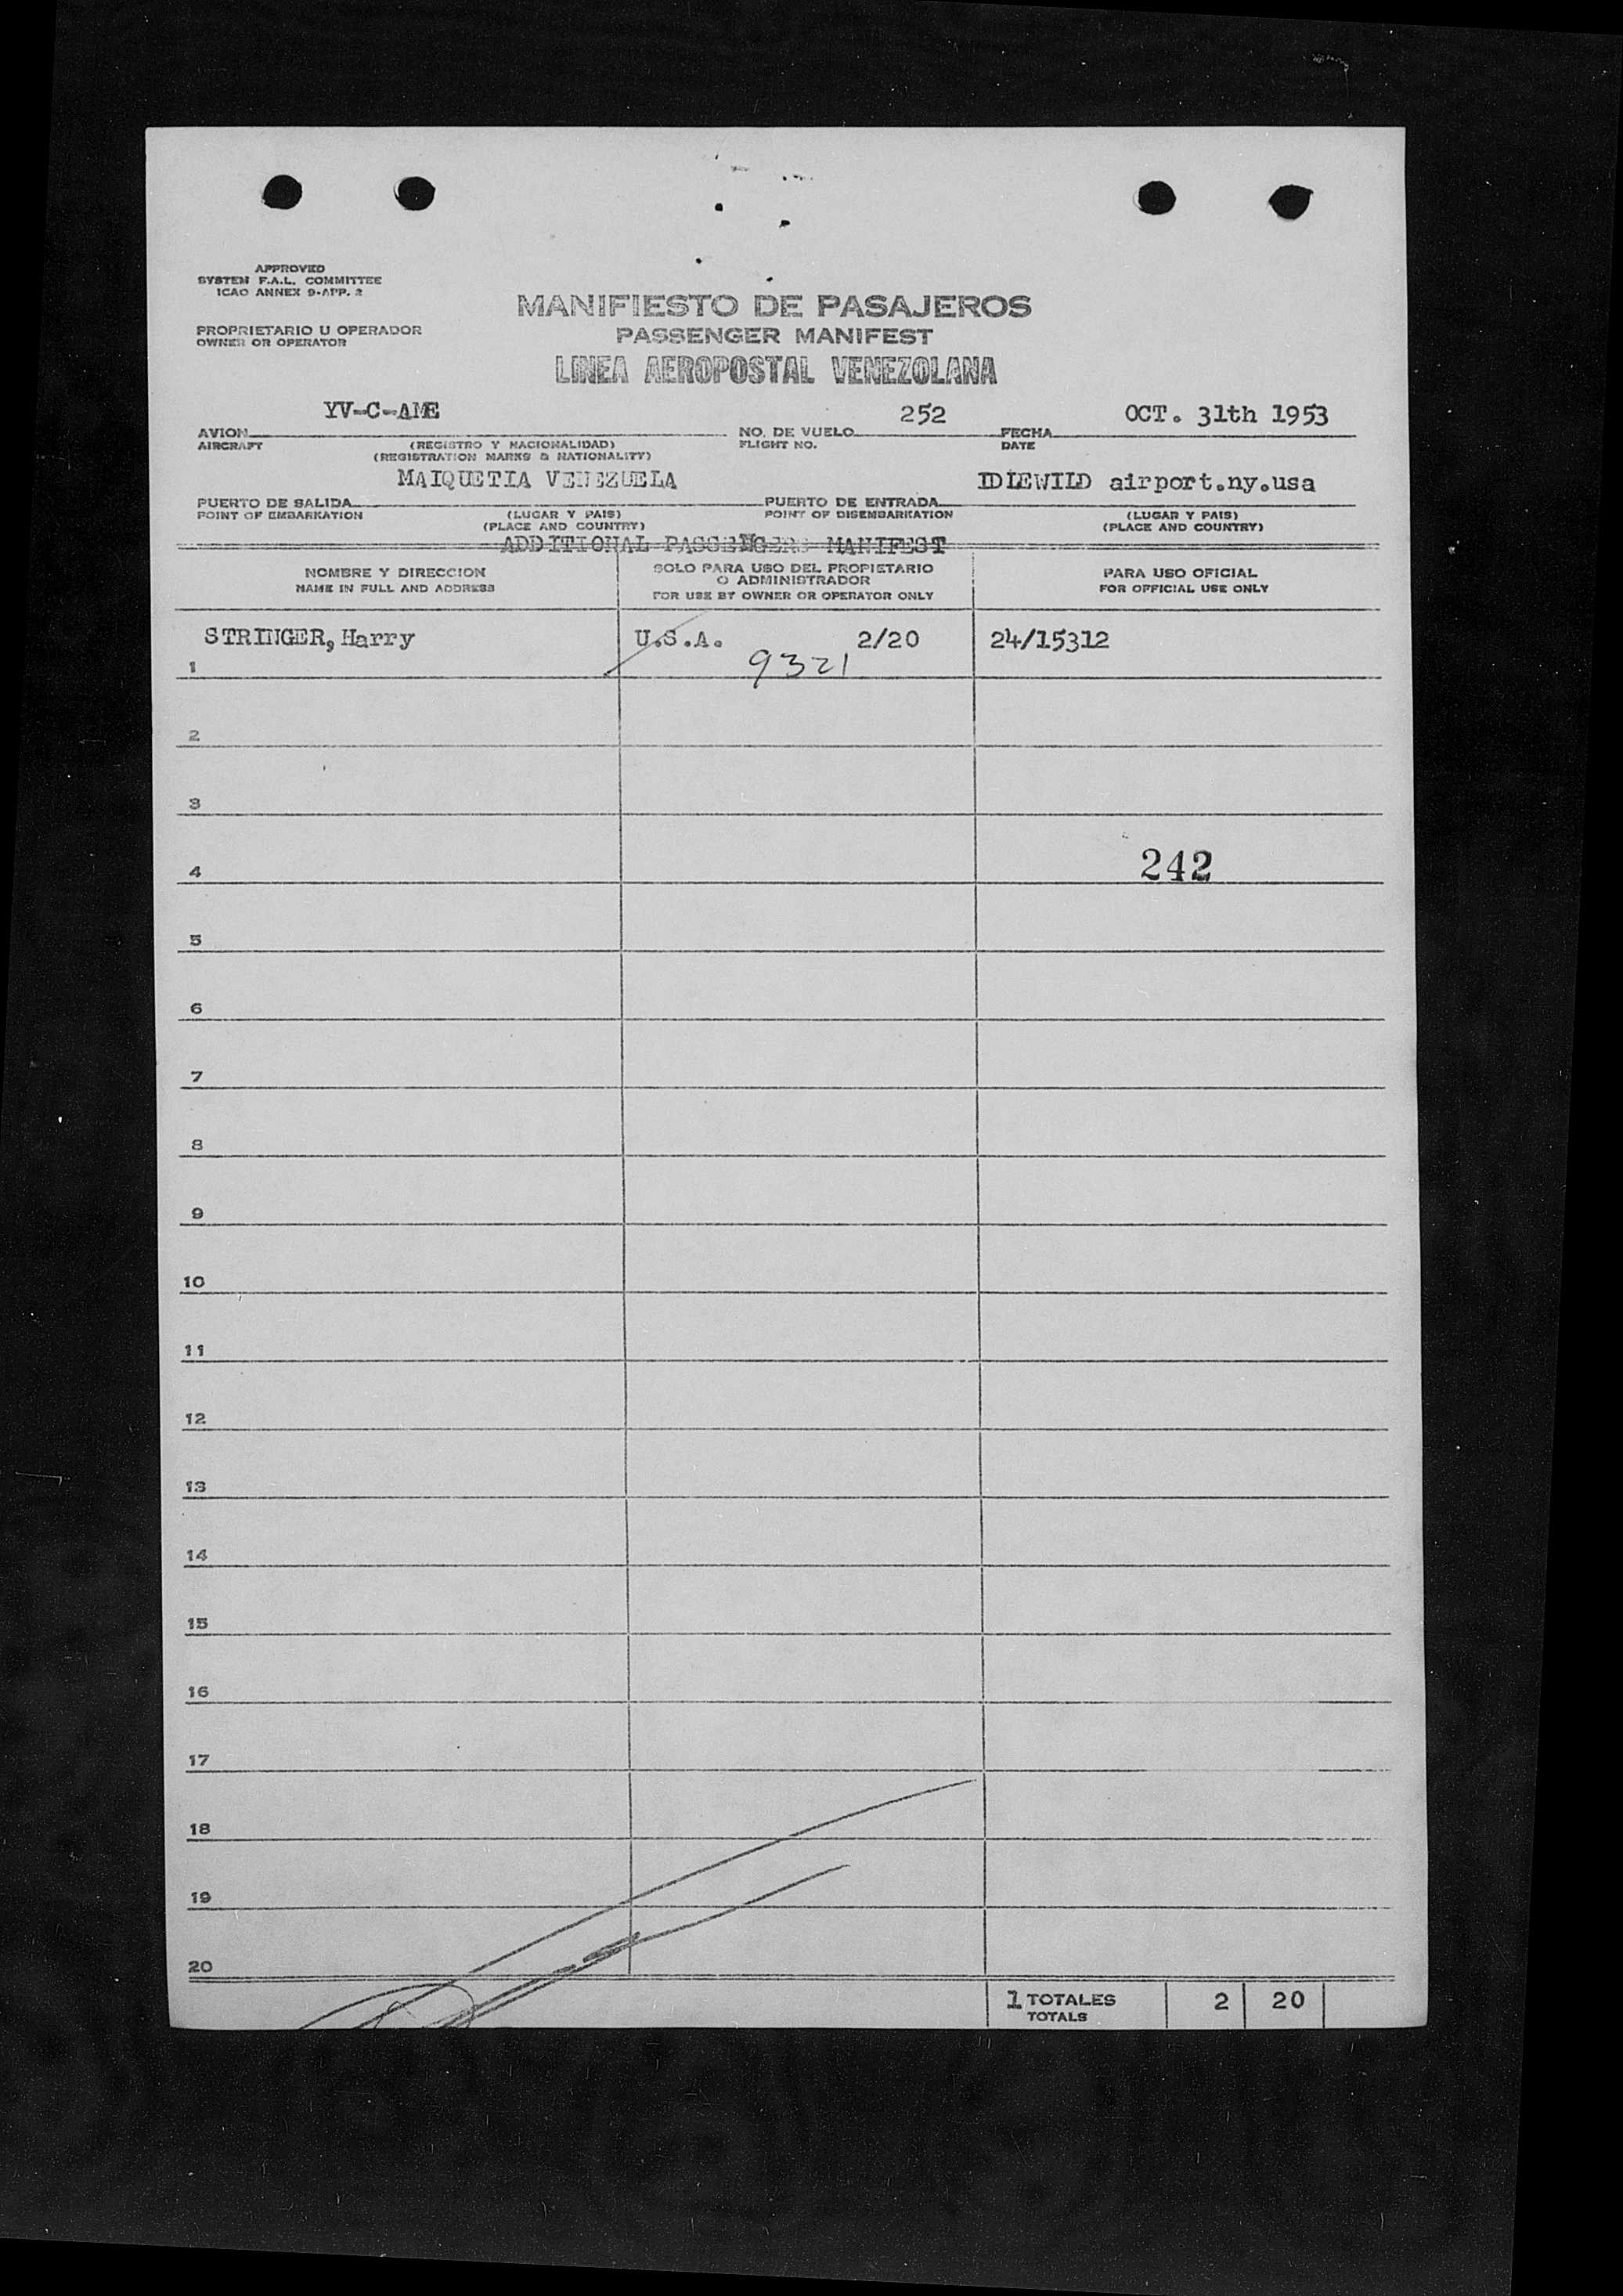 APPROVED
SYSTEM F.A.L. COMMITTEE
ICAO ANNEX 9-APP. 2
PROPRIETARIO U OPERADOR
OWNER OR OPERATOR
MANIFIESTO DE PASAJEROS
PASSENGER MANIFEST
LINEA AEROPOSTAL VENEZOLANA
YV-C-AME 252 OCT. 31th 1953
AVION NO. DE VUELO FECHA
AIRCRAFT (REGISTRO Y NACIONALIDAD) FLIGHT NO. DATE
(REGISTRATION MARKS & NATIONALITY)
MAIQUETIA VENEZUELA IDLEWILD airport.ny.usa
PUERTO DE SALIDA PUERTO DE ENTRADA
POINT OF EMBARKATION (LUGAR Y PAIS) POINT OF DISEMBARKATION (LUGAR Y PAIS)
(PLACE AND COUNTRY) (PLACE AND COUNTRY)
ADDITIONAL PASSENGERS MANIFEST
NOMBRE Y DIRECCION SOLO PARA USO DEL PROPIETARIO PARA USO OFICIAL
O ADMINISTRADOR
NAME IN FULL AND ADDRESS FOR USE BY OWNER OR OPERATOR ONLY FOR OFFICIAL USE ONLY
STRINGER, Harry U.S.A. 2/20 24/15312
1 9321
2
3
4 242
5
6
7
8
9
10
11
12
13
14
15
16
17
18
19
20
1 TOTALES 2 20
TOTALS